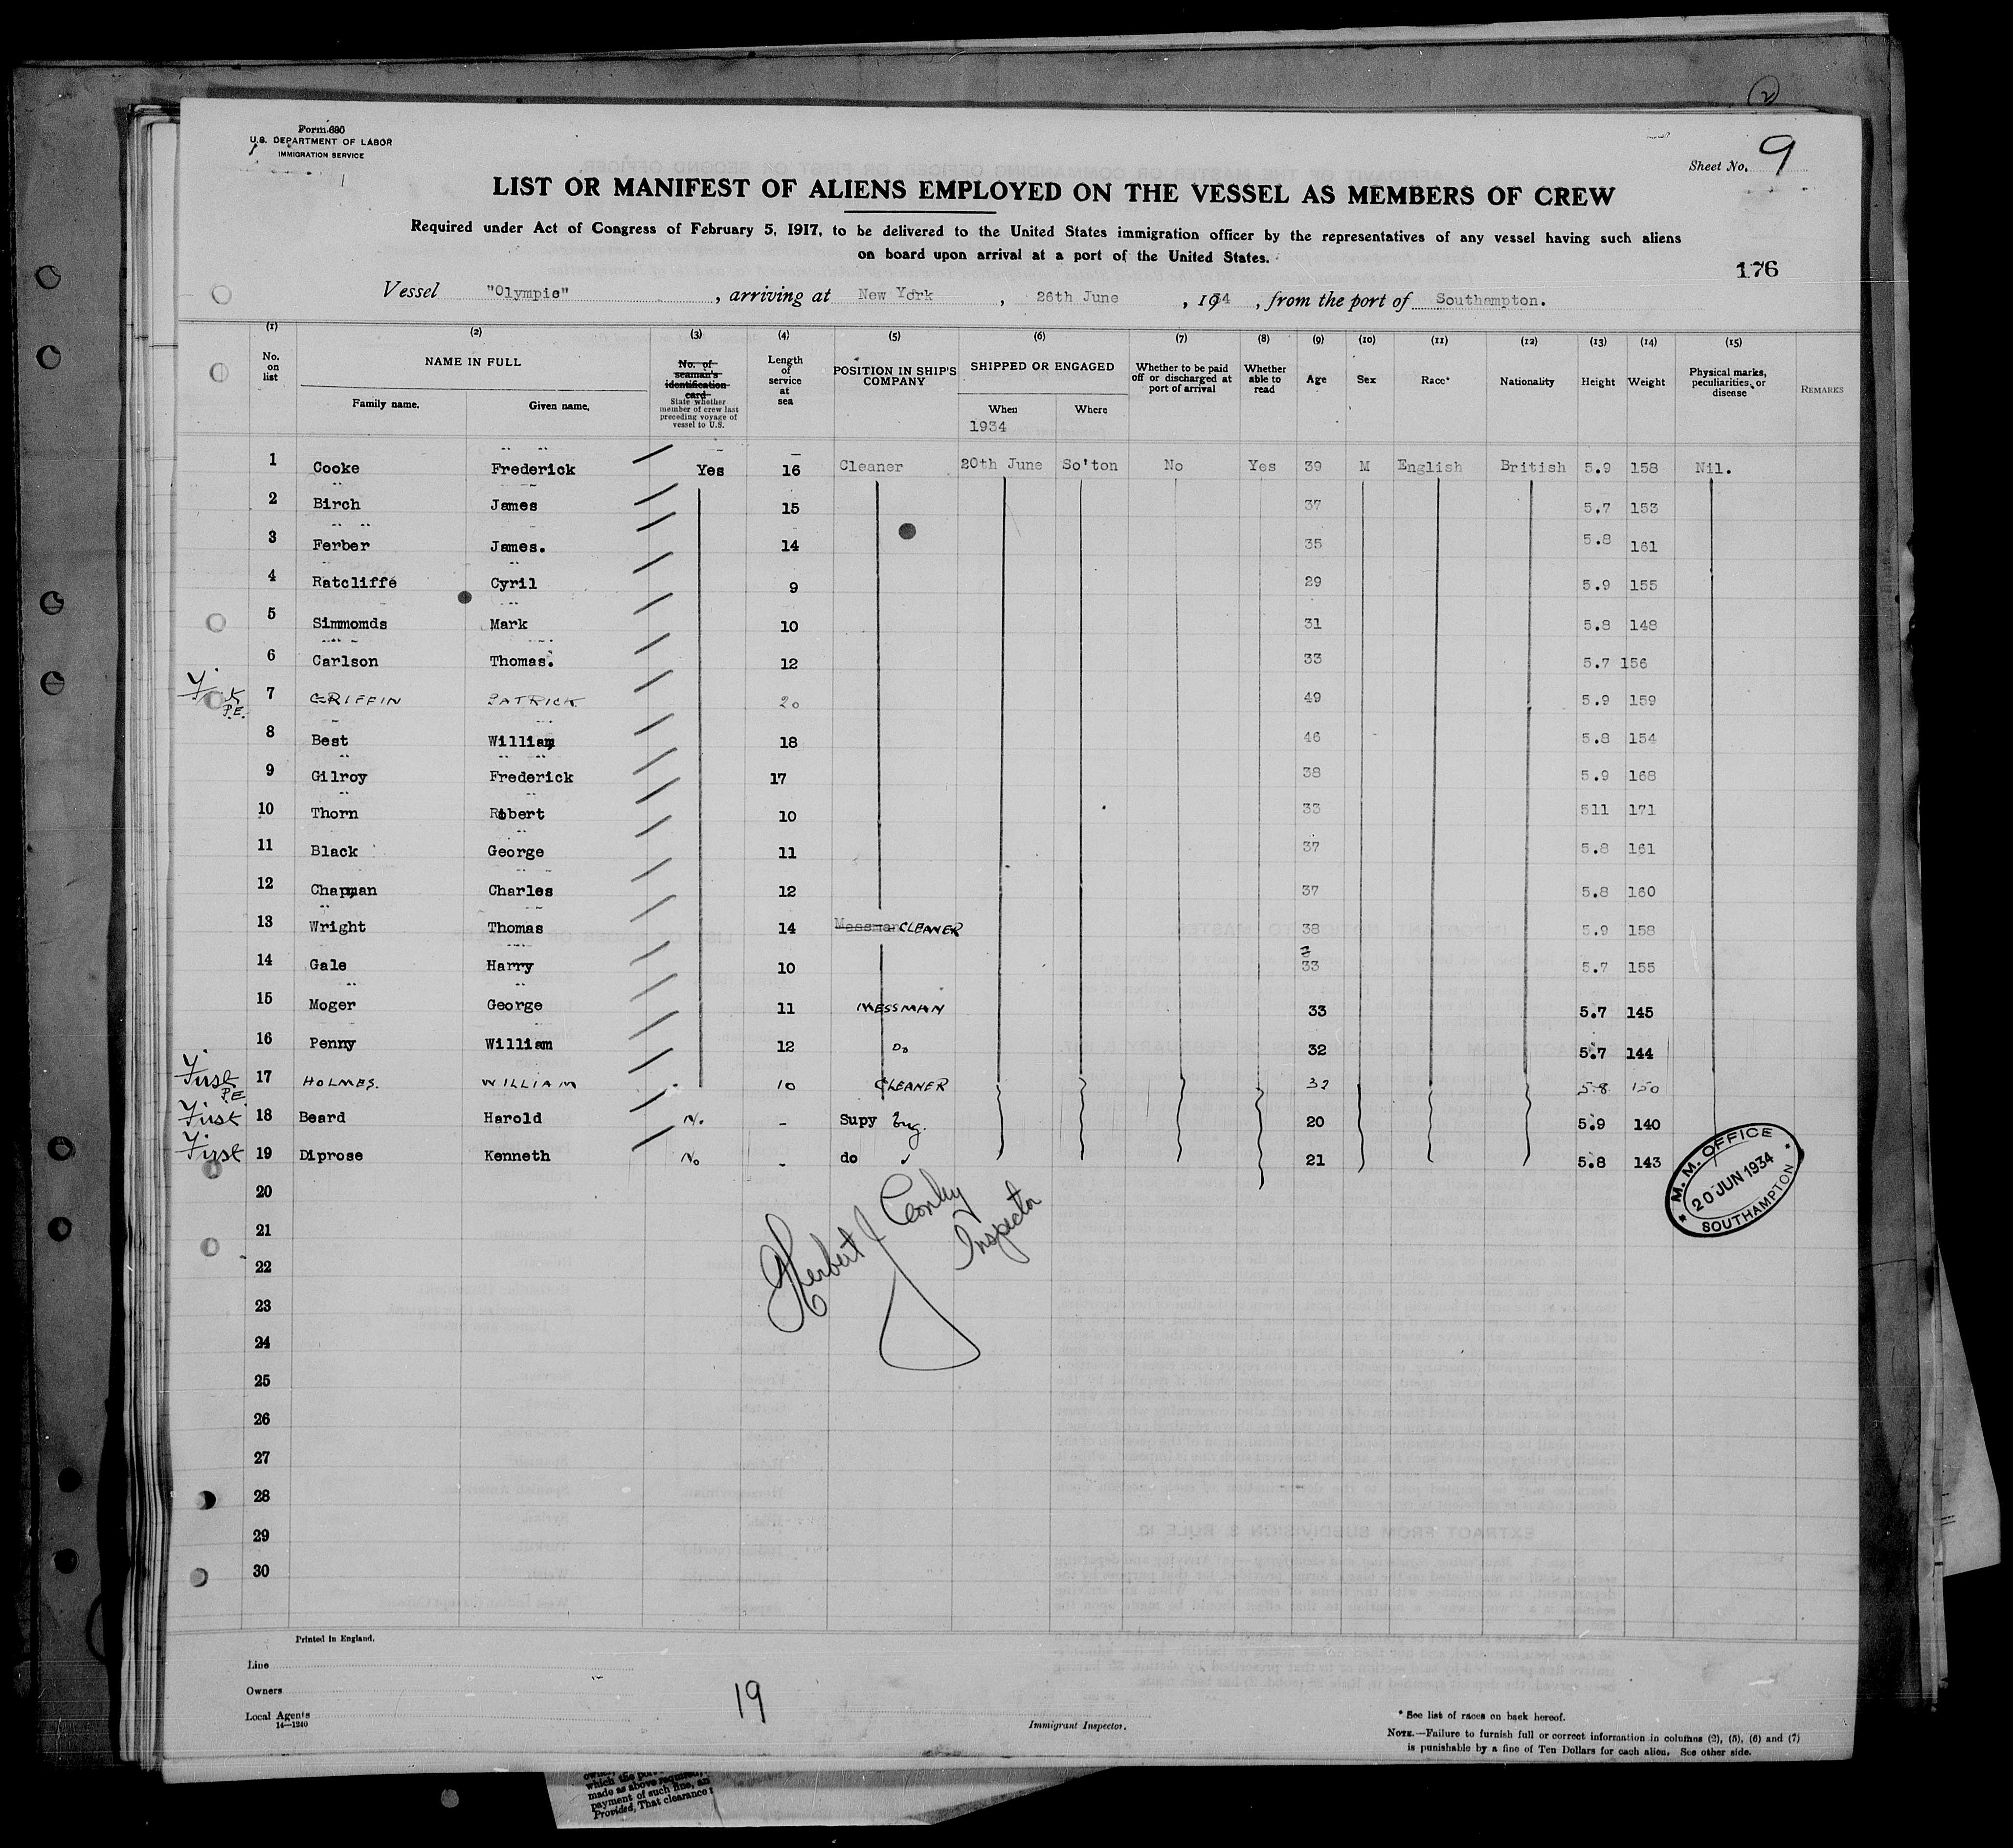 2
Form 680
U.S. DEPARTMENT OF LABOR
IMMIGRATION SERVICE
Sheet No. 9
LIST OR MANIFEST OF ALIENS EMPLOYED ON THE VESSEL AS MEMBERS OF CREW
Required under Act of Congress of February 5, 1917, to be delivered to the United States immigration officer by the representatives of any vessel having such aliens
on board upon arrival at a port of the United States.
176
Vessel "Olympic", arriving at New York, 26th June, 1934, from the port of Southampton.
(1) (2) (3) (4) (5) (6) (7) (8) (9) (10) (11) (12) (13) (14) (15)
No. on list NAME IN FULL Family name. Given name. No. of seaman's identification card State whether member of crew last preceding voyage of vessel to U.S. Length of service at sea POSITION IN SHIP'S COMPANY SHIPPED OR ENGAGED When 1934 Where Whether to be paid off or discharged at port of arrival Whether able to read Age Sex Race* Nationality Height Weight Physical marks, peculiarities, or disease REMARKS
1 Cooke Frederick Yes 16 Cleaner 20th June So'ton No Yes 39 M English British 5.9 158 Nil.
2 Birch James 15 37 5.7 153
3 Ferber James. 14 35 5.8 161
4 Ratcliffe Cyril 9 29 5.9 155
5 Simmomds Mark 10 31 5.8 148
6 Carlson Thomas. 12 33 5.7 156
P.E. 7 GRIFFIN PATRICK 20 49 5.9 159
8 Best William 18 46 5.8 154
9 Gilroy Frederick 17 38 5.9 168
10 Thorn Robert 10 33 511 171
11 Black George 11 37 5.8 161
12 Chapman Charles 12 37 5.8 160
13 Wright Thomas 14 Messman CLEANER 38 5.9 158
14 Gale Harry 10 33 5.7 155
15 Moger George 11 MESSMAN 33 5.7 145
16 Penny William 12 Do 32 5.7 144
First P.E. 17 HOLMES. WILLIAM 10 CLEANER 32 5.8 150
First 18 Beard Harold No. - Supy Eng. 20 5.9 140
First 19 Diprose Kenneth No - do 21 5.8 143
M. M. OFFICE
20 JUN 1934
SOUTHAMPTON
20
21
22
23
24
25
26
27
28
29
30
Herbert J Conley
Inspector
Printed in England.
Line
Owners
Local Agents
14—1240
19
Immigrant Inspector.
* See list of races on back hereof.
NOTE.—Failure to furnish full or correct information in columns (2), (5), (6) and (7)
is punishable by a fine of Ten Dollars for each alien. See other side.
which the port
made as above required,
payment of such fine, an
Provided, That clearance